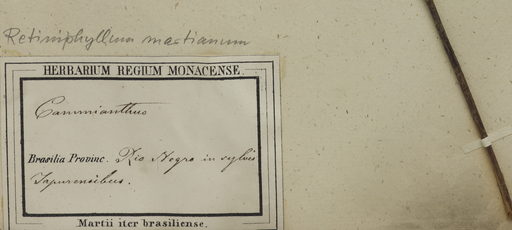 Retiniphyllum martianum
HERBARIUM REGIUM MONACENSE.
Commianthus
Brasilia Provinc. Rio Negro in sylvis
Japurensibus.
Martii iter brasiliense.